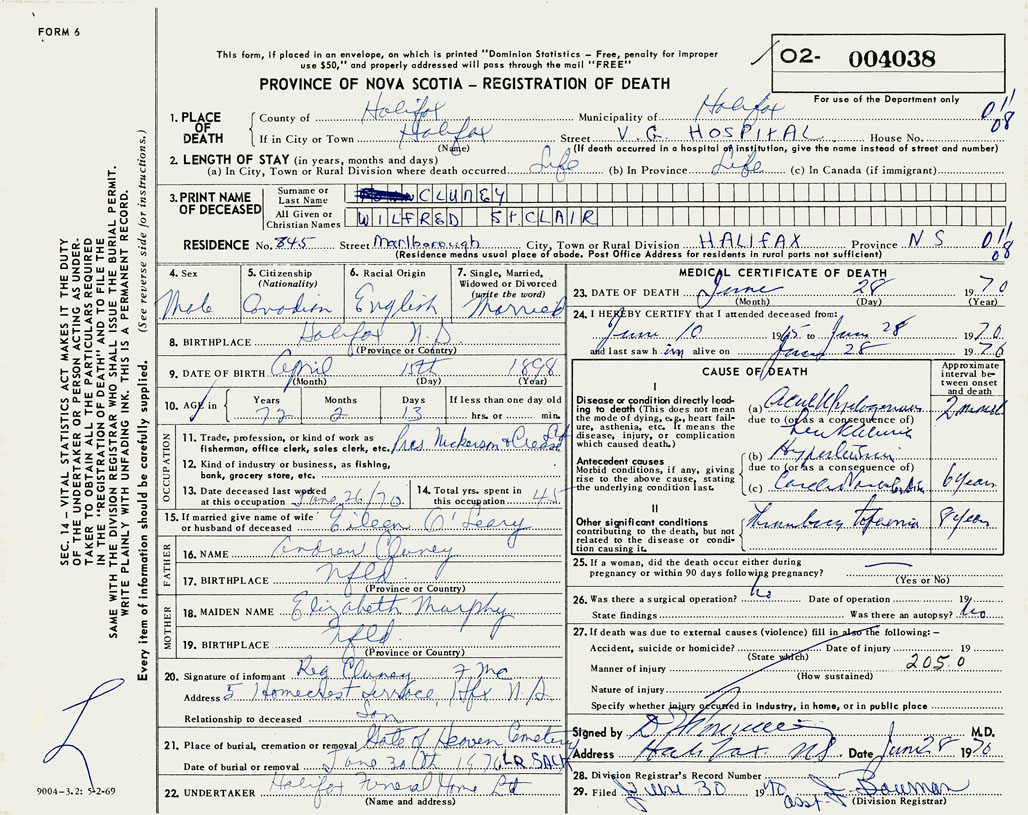 FORM 6
This form, if placed in an envelope, on which is printed "Dominion Statistics – Free, penalty for improper
use $50," and properly addressed will pass through the mail "FREE"
O2- 004038
PROVINCE OF NOVA SCOTIA – REGISTRATION OF DEATH
For use of the Department only
1. PLACE OF DEATH
County of Halifax Municipality of Halifax 011
If in City or Town Halifax Street V.G. HOSPITAL House No. 08
(Name) (If death occurred in a hospital or institution, give the name instead of street and number)
2. LENGTH OF STAY (in years, months and days)
(a) In City, Town or Rural Division where death occurred Life (b) In Province Life (c) In Canada (if immigrant)
3. PRINT NAME OF DECEASED
Surname or Last Name CLUNEY
All Given or Christian Names WILFRED StCLAIR
RESIDENCE No. 845 Street Marlborough City, Town or Rural Division HALIFAX Province NS 011
(Residence means usual place of abode. Post Office Address for residents in rural parts not sufficient) 08
4. Sex
Male
5. Citizenship
(Nationality)
Canadian
6. Racial Origin
English
7. Single, Married,
Widowed or Divorced
(write the word)
Married
8. BIRTHPLACE Halifax N.S
(Province or Country)
9. DATE OF BIRTH April 15th 1898
(Month) (Day) (Year)
10. AGE in
Years Months Days If less than one day old
72 2 13 hrs. or min.
OCCUPATION
11. Trade, profession, or kind of work as
fisherman, office clerk, sales clerk, etc. Pres Nickerson & Crease Ltd
12. Kind of industry or business, as fishing,
bank, grocery store, etc.
13. Date deceased last worked
at this occupation June 26/70
14. Total yrs. spent in
this occupation 45
15. If married give name of wife
or husband of deceased Eileen O'Leary
FATHER
16. NAME Andrew Cluney
17. BIRTHPLACE Nfld.
(Province or Country)
MOTHER
18. MAIDEN NAME Elizabeth Murphy
19. BIRTHPLACE Nfld.
(Province or Country)
20. Signature of informant Reg Cluney
Address 5 Homecrest Terrace, Hfx N.S
Relationship to deceased Son
21. Place of burial, cremation or removal Gate of Heaven Cemetery
Date of burial or removal June 30th 1970 LR SACK
22. UNDERTAKER Halifax Funeral Home Ltd
(Name and address)
MEDICAL CERTIFICATE OF DEATH
23. DATE OF DEATH June 28 1970
(Month) (Day) (Year)
24. I HEREBY CERTIFY that I attended deceased from:
June 10 1965 to June 28 1970
and last saw him alive on June 28 1970
CAUSE OF DEATH
Approximate interval between onset and death
I
Disease or condition directly leading to death (This does not mean
the mode of dying, e.g., heart failure, asthenia, etc. It means the
disease, injury, or complication
which caused death.)
(a) Acute Myelogenous
due to (or as a consequence of)
Leukemia
Antecedent causes
Morbid conditions, if any, giving
rise to the above cause, stating
the underlying condition last.
(b) Hypertension
due to (or as a consequence of)
(c) 6 years
II
Other significant conditions
contributing to the death, but not
related to the disease or condition causing it.
8 years
25. If a woman, did the death occur either during
pregnancy or within 90 days following pregnancy? —
(Yes or No)
26. Was there a surgical operation? No Date of operation 19
State findings Was there an autopsy? No
27. If death was due to external causes (violence) fill in also the following: –
Accident, suicide or homicide? Date of injury 19
(State which)
Manner of injury 205.0
(How sustained)
Nature of injury
Specify whether injury occurred in industry, in home, or in public place
Signed by M.D.
Address Halifax NS Date June 28 1970
28. Division Registrar's Record Number
29. Filed June 30 1970 asst. J. Bowman
(Division Registrar)
SEC. 14 – VITAL STATISTICS ACT MAKES IT THE DUTY
OF THE UNDERTAKER OR PERSON ACTING AS UNDERTAKER TO OBTAIN ALL THE PARTICULARS REQUIRED
IN THE "REGISTRATION OF DEATH" AND TO FILE THE
SAME WITH THE DIVISION REGISTRAR WHO SHALL ISSUE THE BURIAL PERMIT.
WRITE PLAINLY WITH UNFADING INK. THIS IS A PERMANENT RECORD.
Every item of information should be carefully supplied. (See reverse side for instructions.)
9004-3.2: 5-2-69